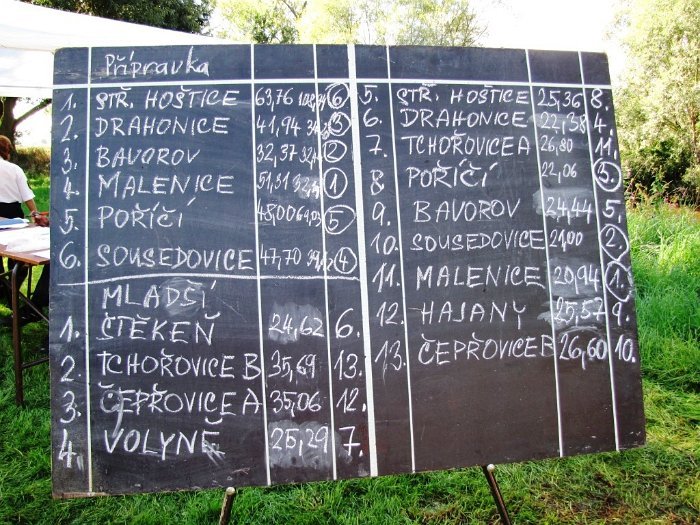 Přípravka
1. STŘ. HOŠTICE 63,76 6
2. DRAHONICE 41,94 3
3. BAVOROV 32,37 2
4. MALENICE 51,31 1
5. POŘÍČÍ 48,00 5
6. SOUSEDOVICE 47,70 4
MLADŠÍ
1. ŠTĚKEŇ 24,62 6.
2. TCHOŘOVICE B 35,69 13.
3. ČEPŘOVICE A 35,06 12.
4. VOLYNĚ 25,29 7.
5. STŘ. HOŠTICE 25,36 8.
6. DRAHONICE 22,38 4.
7. TCHOŘOVICE A 26,80 11.
8. POŘÍČÍ 22,06 3.
9. BAVOROV 24,44 5.
10. SOUSEDOVICE 21,00 2.
11. MALENICE 20,94 1.
12. HAJANY 25,57 9.
13. ČEPŘOVICE B 26,60 10.